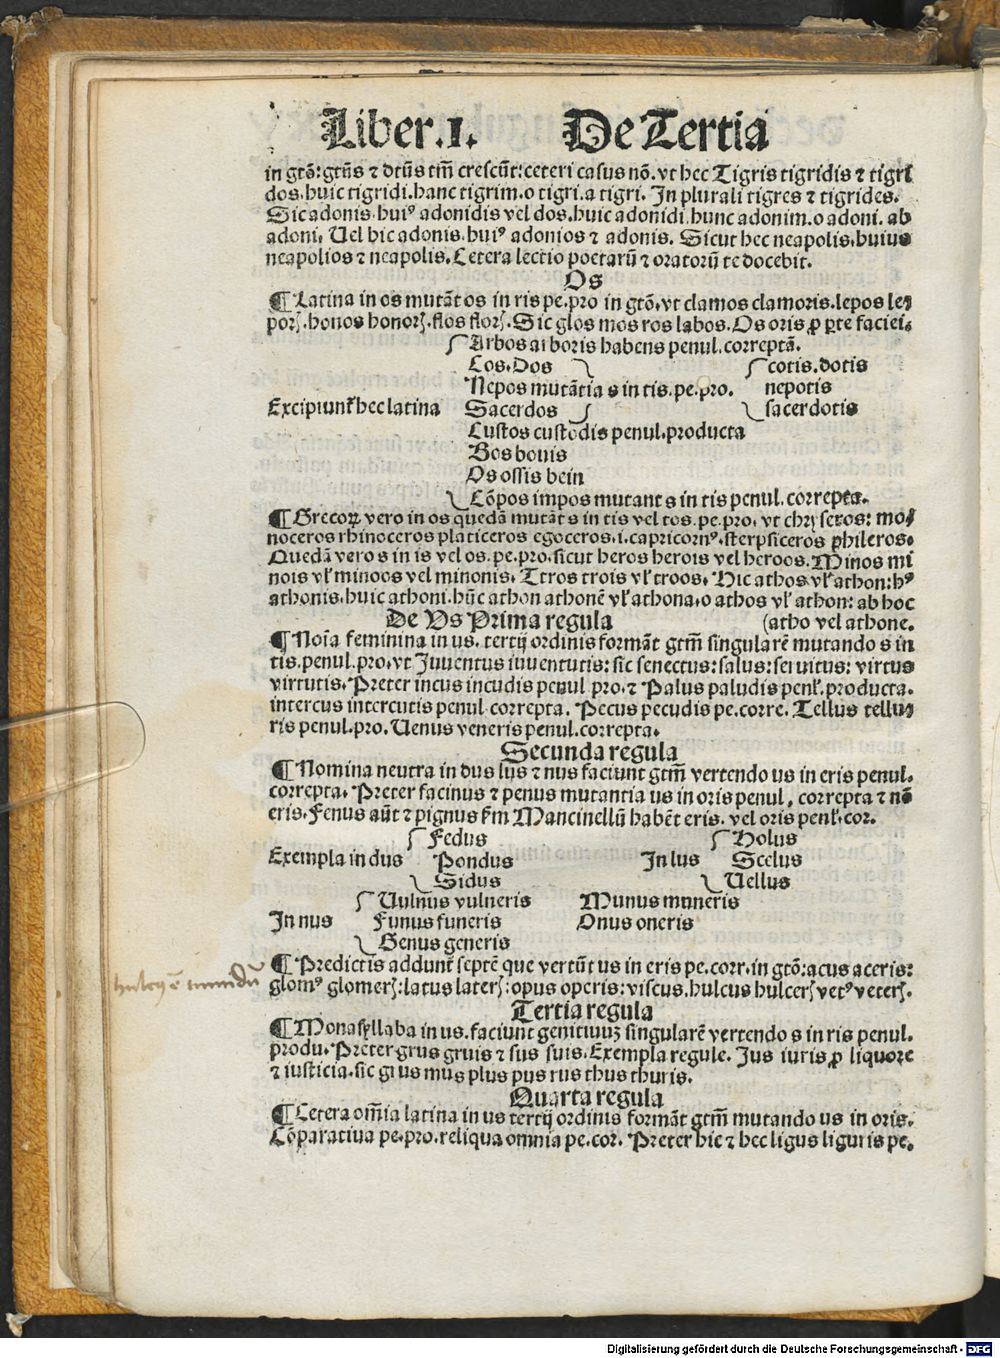 Liber.1. De Tertia
in gtō: gtūs ⁊ dtūs tm̄ crescūt: ceteri casus nō. vt hec Tigris tigridis ⁊ tigri
dos. huic tigridi. hanc tigrim. o tigri. a tigri. In plurali tigres ⁊ tigrides.
Sic adonis. huiꝰ adonidis vel dos. huic adonidi. hunc adonim. o adoni. ab
adoni. Uel hic adonis. huiꝰ adonios ⁊ adonis. Sicut hec neapolis. huius
neapolios ⁊ neapolis. Cetera lectio poetarū ⁊ oratorū te docebit.
Os
¶ Latina in os mutāt os in ris pe. pro in gtō. vt clamos clamoris. lepos le
porꝭ. honos honorꝭ. flos florꝭ. Sic glos mos ros labos. Os oris ꝓ ꝑte faciei.
Arbos arboris habens penul. correptā.
Cos. Dos cotis. dotis
Nepos mutātia s in tis. pe. pro. nepotis
Excipiunt̄ hec latina Sacerdos sacerdotis
Custos custodis penul. producta
Bos bouis
Os ossis bein
Cōpos impos mutant s in tis penul. correpta.
¶ Grecoꝝ vero in os quedā mutāt s in tis vel tos. pe. pro. vt seros: mo
noceros rhinoceros platiceros egoceros. i. capricornꝰ. sterpsiceros phileros.
Quedā vero s in is vel os. pe. pro. sicut heros herois vel heroos. Minos mi
nois vl̄ minoos vel minonis. Ttros trois vl̄ troos. Hic athos vl̄ athon: hꝰ
athonis. huic athoni. hūc athon athonē vl̄ athona. o athos vl̄ athon: ab hoc
De Us Prima regula (atho vel athone.
¶ Noīa feminina in us. tertij ordinis formāt gtm̄ singularē mutando s in
tis. penul. pro. vt Juuentus iuuentutis: sic senectus: salus: seruitus: virtus
virtutis. Preter incus incudis penul pro. ⁊ Palus paludis penl̄. producta.
intercus intercutis penul correpta. Pecus pecudis pe. corre. Tellus tellu
ris penul. pro. Uenus veneris penul. correpta.
Secunda regula
¶ Nomina neutra in dus lus ⁊ nus faciunt gtm̄ vertendo us in eris penul.
correpta. Preter facinus ⁊ penus mutantia us in oris penul, correpta ⁊ nō
eris. Fenus aūt ⁊ pignus fm̄ Mancinellū habēt eris. vel oris penl̄. cor.
Fedus Holus
Exempla in dus Pondus In lus Scelus
Sidus Uellus
Uulnus vulneris Munus muneris
In nus Funus funeris Onus oneris
Genus generis
¶ Predictis addunt̄ septē que vertūt us in eris pe. corr. in gtō: acus aceris:
glomꝰ glomerꝭ: latus laterꝭ: opus operis: viscus. hulcus hulcerꝭ vetꝰ veterꝭ.
Tertia regula
¶ Monasyllaba in us. faciunt genitiuuꝫ singularē vertendo s in ris penul.
produ. Preter grus gruis ⁊ sus suis. Exempla regule. Jus iuris ꝓ liquore
⁊ iusticia. sic grus mus plus pus rus thus thuris.
Quarta regula
¶ Cetera om̄ia latina in us tertij ordinis formāt gtm̄ mutando us in oris.
Cōparatiua pe. pro. reliqua omnia pe. cor. Preter hic ⁊ hec ligus liguris pe.
Digitalisierung gefördert durch die Deutsche Forschungsgemeinschaft - DFG